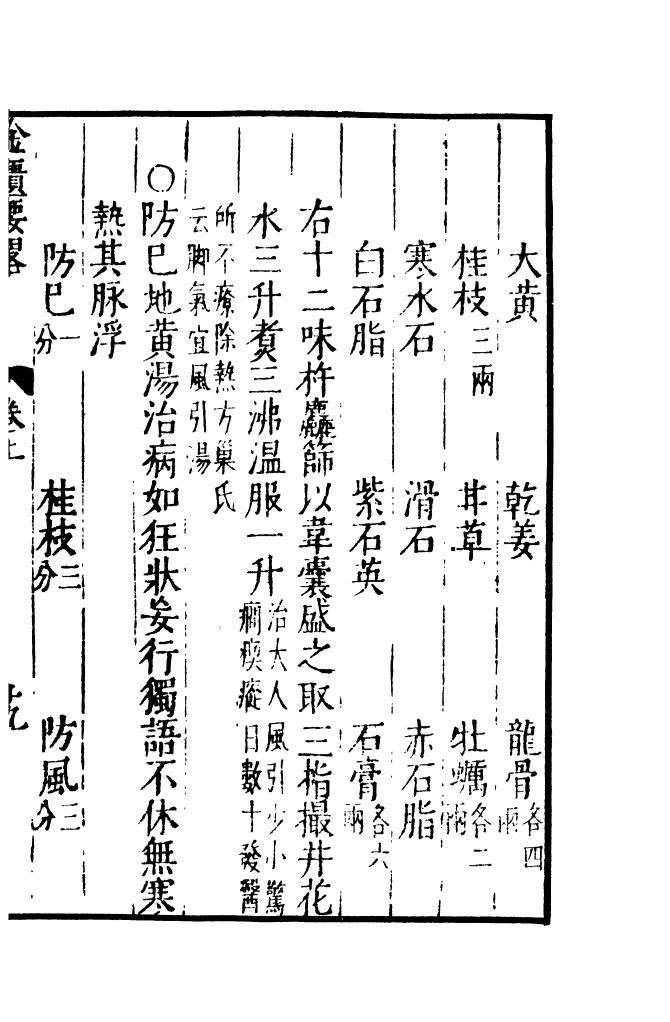 大黄 乾姜 龍骨各四兩
桂枝三兩 甘草 牡蠣各二兩
寒水石 滑石 赤石脂
白石脂 紫石英 石膏各六兩
右十二味杵麤篩以韋囊盛之取三指撮井花
水三升煑三沸温服一升治大人風引少小驚癇瘈瘲日數十發醫
所不療除熱方巢氏云脚氣宜風引湯
○防巳地黄湯治病如狂狀妄行獨語不休無寒
熱其脉浮
防巳一分 桂枝三分 防風三分
金匱要畧 卷上